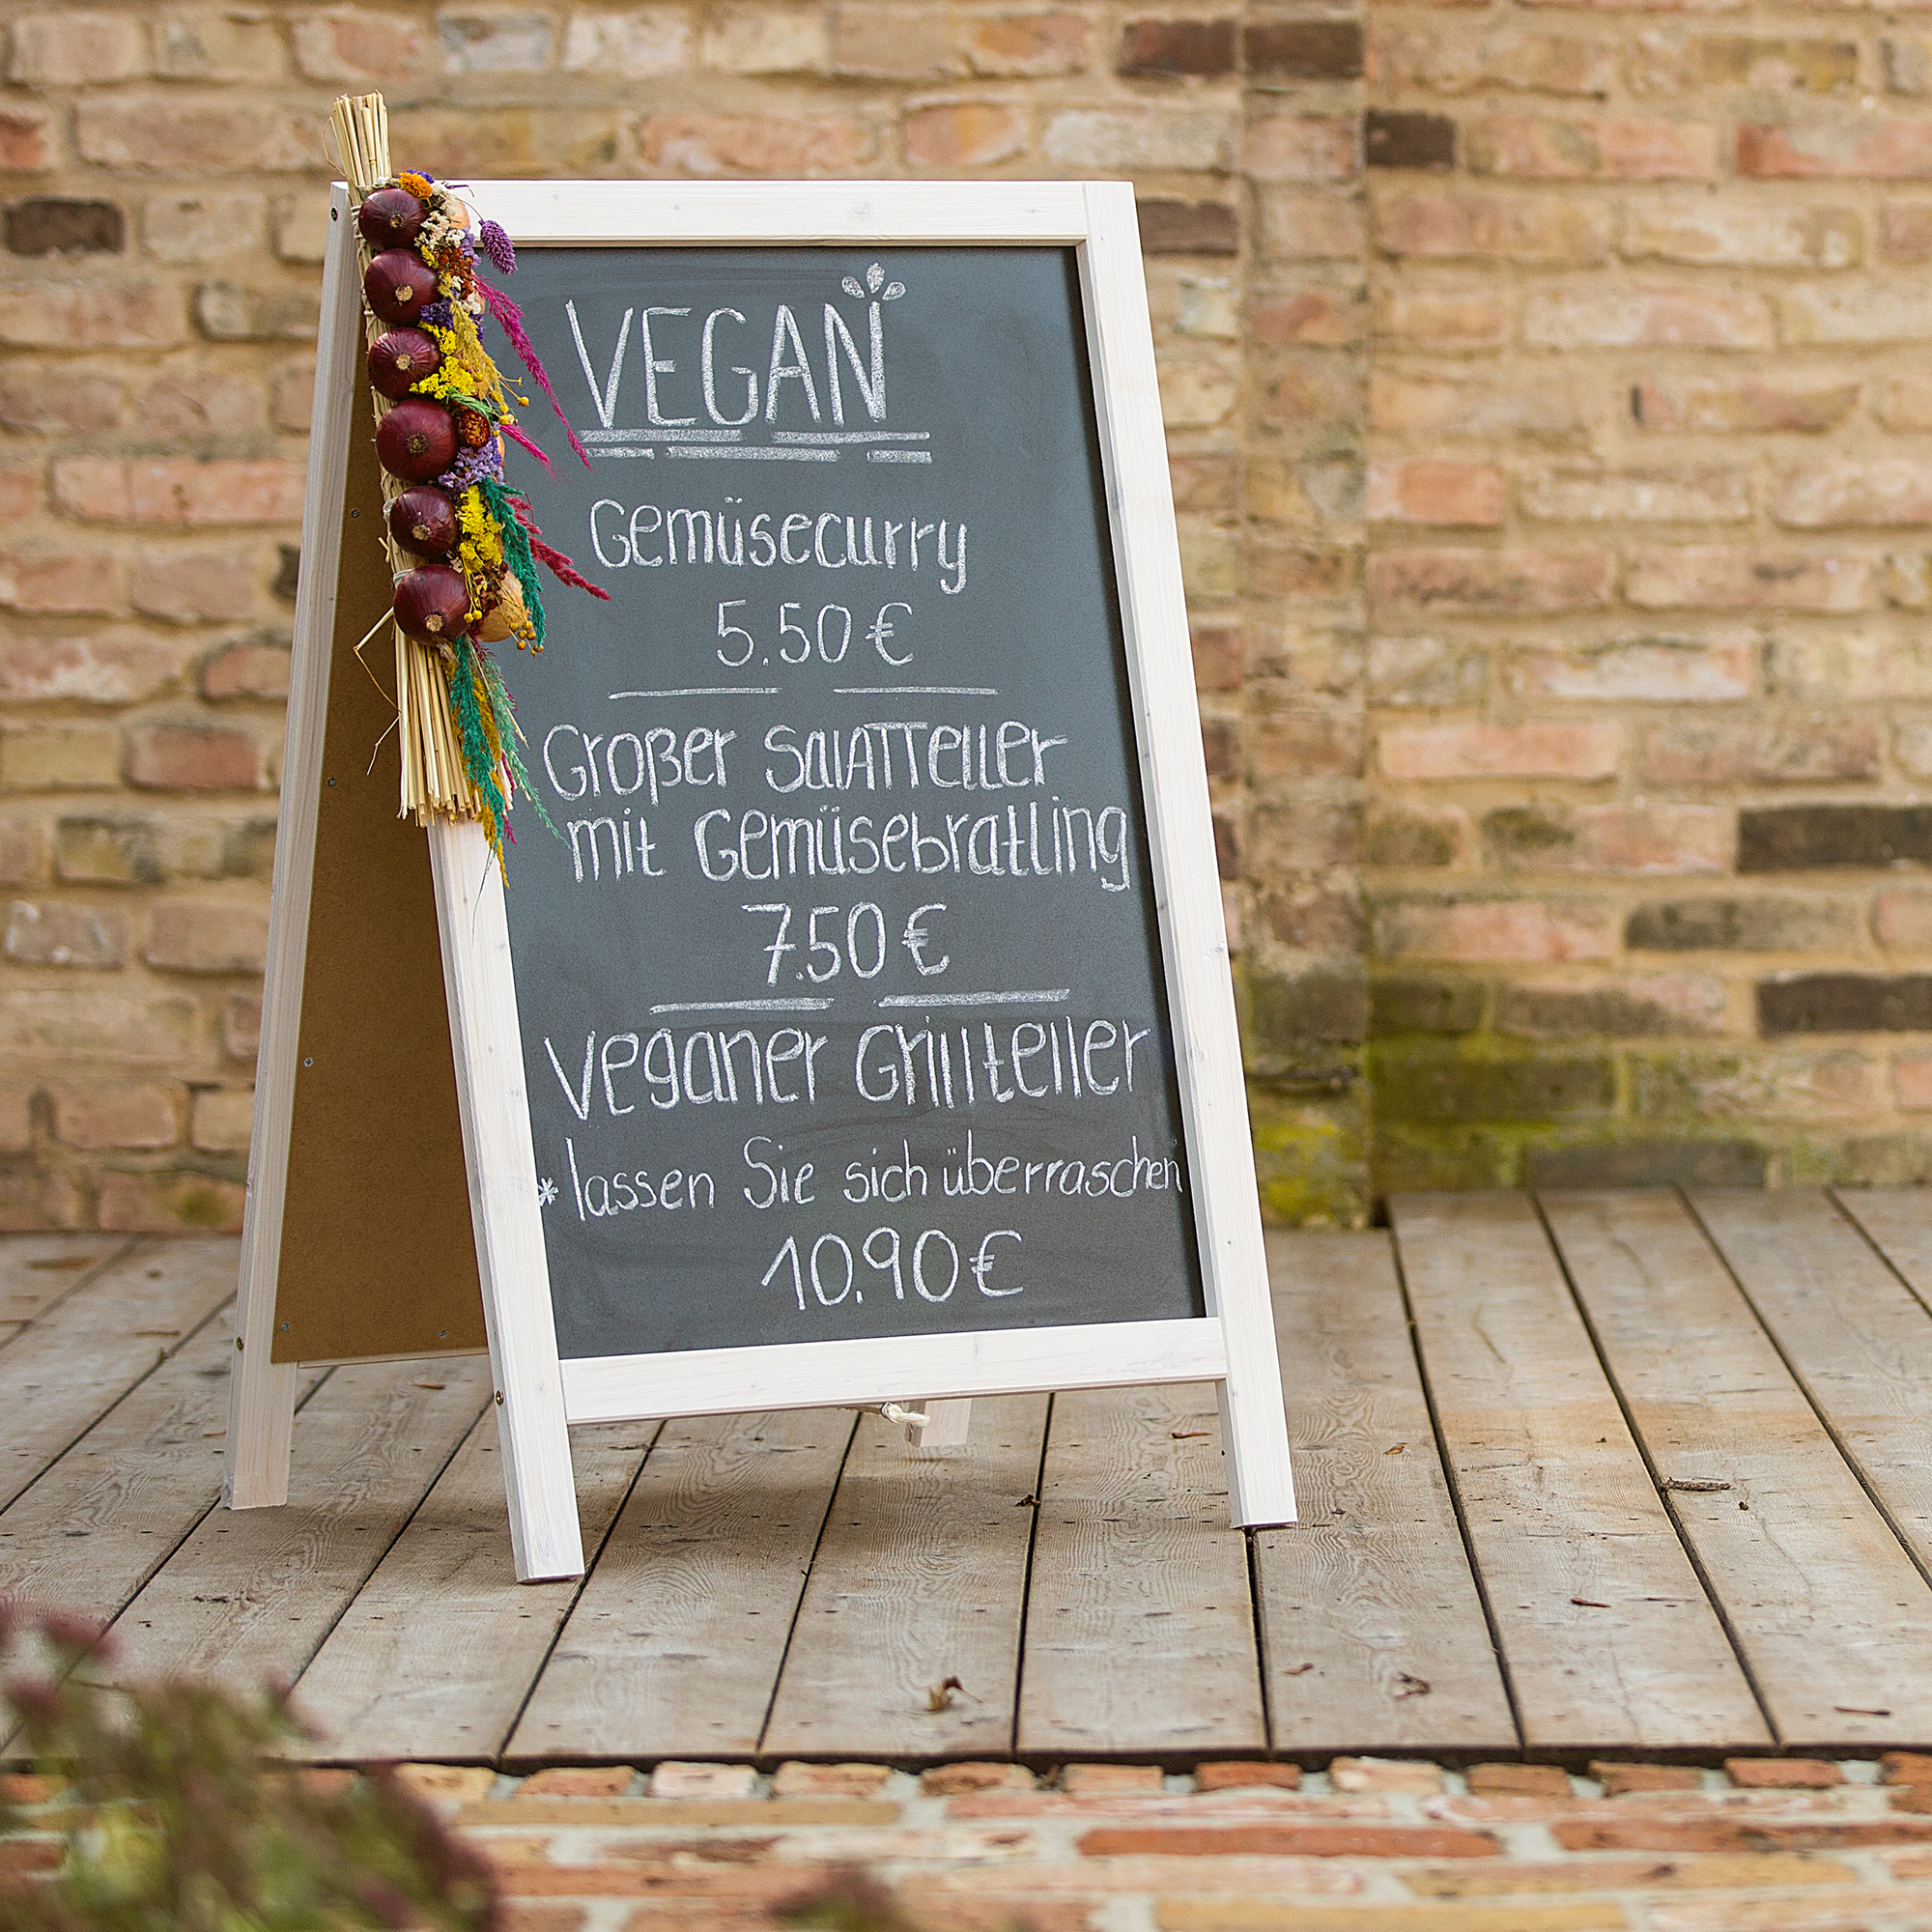 VEGAN
Gemüsecurry
5.50€
Großer Salatteller
mit Gemüsebratling
7.50€
Veganer Grillteller
*lassen Sie sich überraschen
10.90€